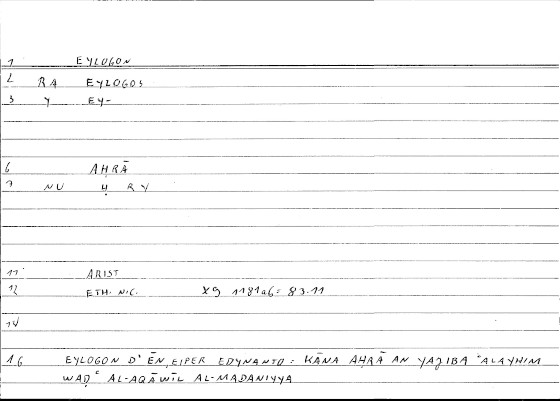 1 EYLOGON
2 RA EYLOGOS
3 Y EY-
6 AḤRĀ
7 NU Ḥ R Y
11 ARIST
12 ETH. NIC. X9 1181a6 = 83.11
14
16 EYLOGON D' ĒN, EIPER EDYNANTO = KĀNA AḤRĀ AN YAJIBA ʿALAYHIM
WAḌʿ AL-AQĀWĪL AL-MADANIYYA